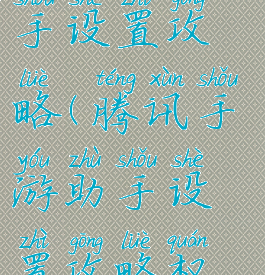 shǒu shè zhì gōng
手设置攻
lüè téng xùn shǒu
略(腾讯手
yóu zhù shǒu shè
游助手设
zhì gōng lüè quán
置攻略权